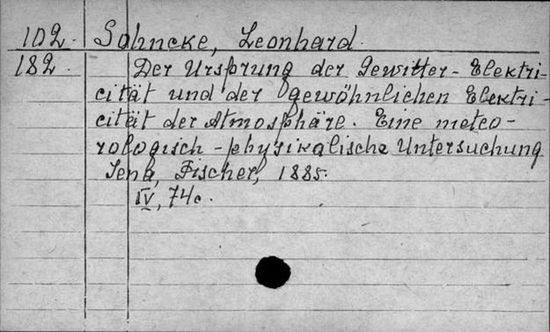 102. Sohncke, Leonhard.
182. Der Ursprung der Gewitter-Elektri-
cität und der gewöhnlichen Elektri-
cität der Atmosphäre. Eine meteo-
rologisch-physikalische Untersuchung
Jena, Fischer, 1885.
IV, 74c.